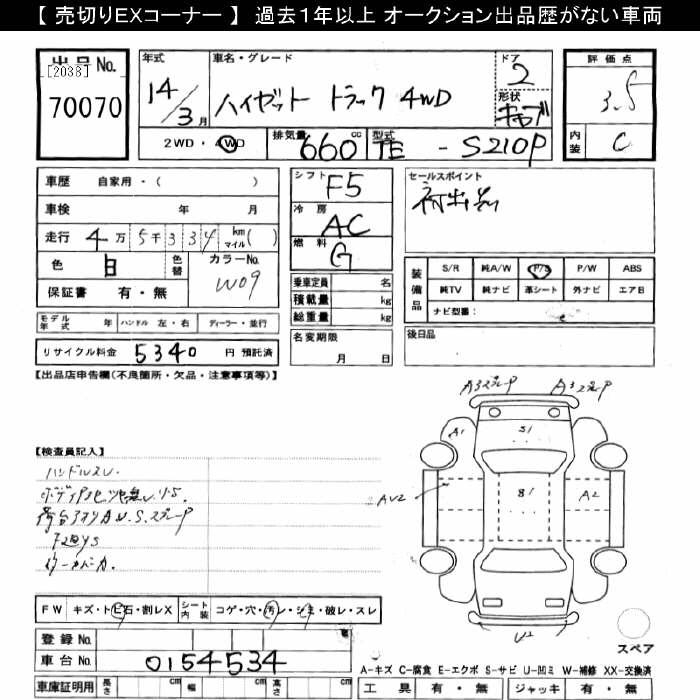 【 売切りEXコーナー 】 過去1年以上 オークション出品歴がない車両
出品 No. [2038] 70070
年式 14/3月
車名・グレード ハイゼット トラック 4WD
ドア 2
形状 キャブ
評価点 3.5
内装 C
2WD・4WD
排気量 660 cc
型式 TE - S210P
車歴 自家用・( )
車検 年 月
走行 4万5千334 km マイル( )
色 白 色替 カラーNo. W09
保証書 有・無
シフト F5
冷房 AC
燃料 G
セールスポイント
初出品
乗車定員 名
積載量 kg
総重量 kg
装備品 S/R 純A/W P/S P/W ABS
純TV 純ナビ 革シート 外ナビ エアB
ナビ型番:
モデル年式 年 ハンドル 左・右 ディーラー・並行
名変期限 月 日
後日品
リサイクル料金 5340 円 預託済
【出品店申告欄(不良箇所・欠品・注意事項等)】
A3スプレーP A3スプレーP
A1 S1
【検査員記入】
ハンドルスレ
AU2 B1 A2
荷台アオリAU.S.スプレーP
FW キズ・トビ石・割レX シート内装 コゲ・穴・汚レ・シミ・破レ・スレ
登録 No.
車台 No. 0154534
U2
スペア
A-キズ C-腐食 E-エクボ S-サビ U-凹ミ W-補修 XX-交換済
車庫証明用 長さ cm 幅 cm 高さ cm
工具 有・無 ジャッキ 有・無